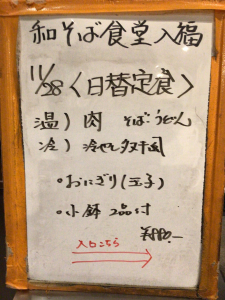 和そば食堂入福
11/28〈日替定食〉
温）肉 そば・うどん
冷）冷やしタヌキ
・おにぎり(玉子)
・小鉢 2品付
入口こちら